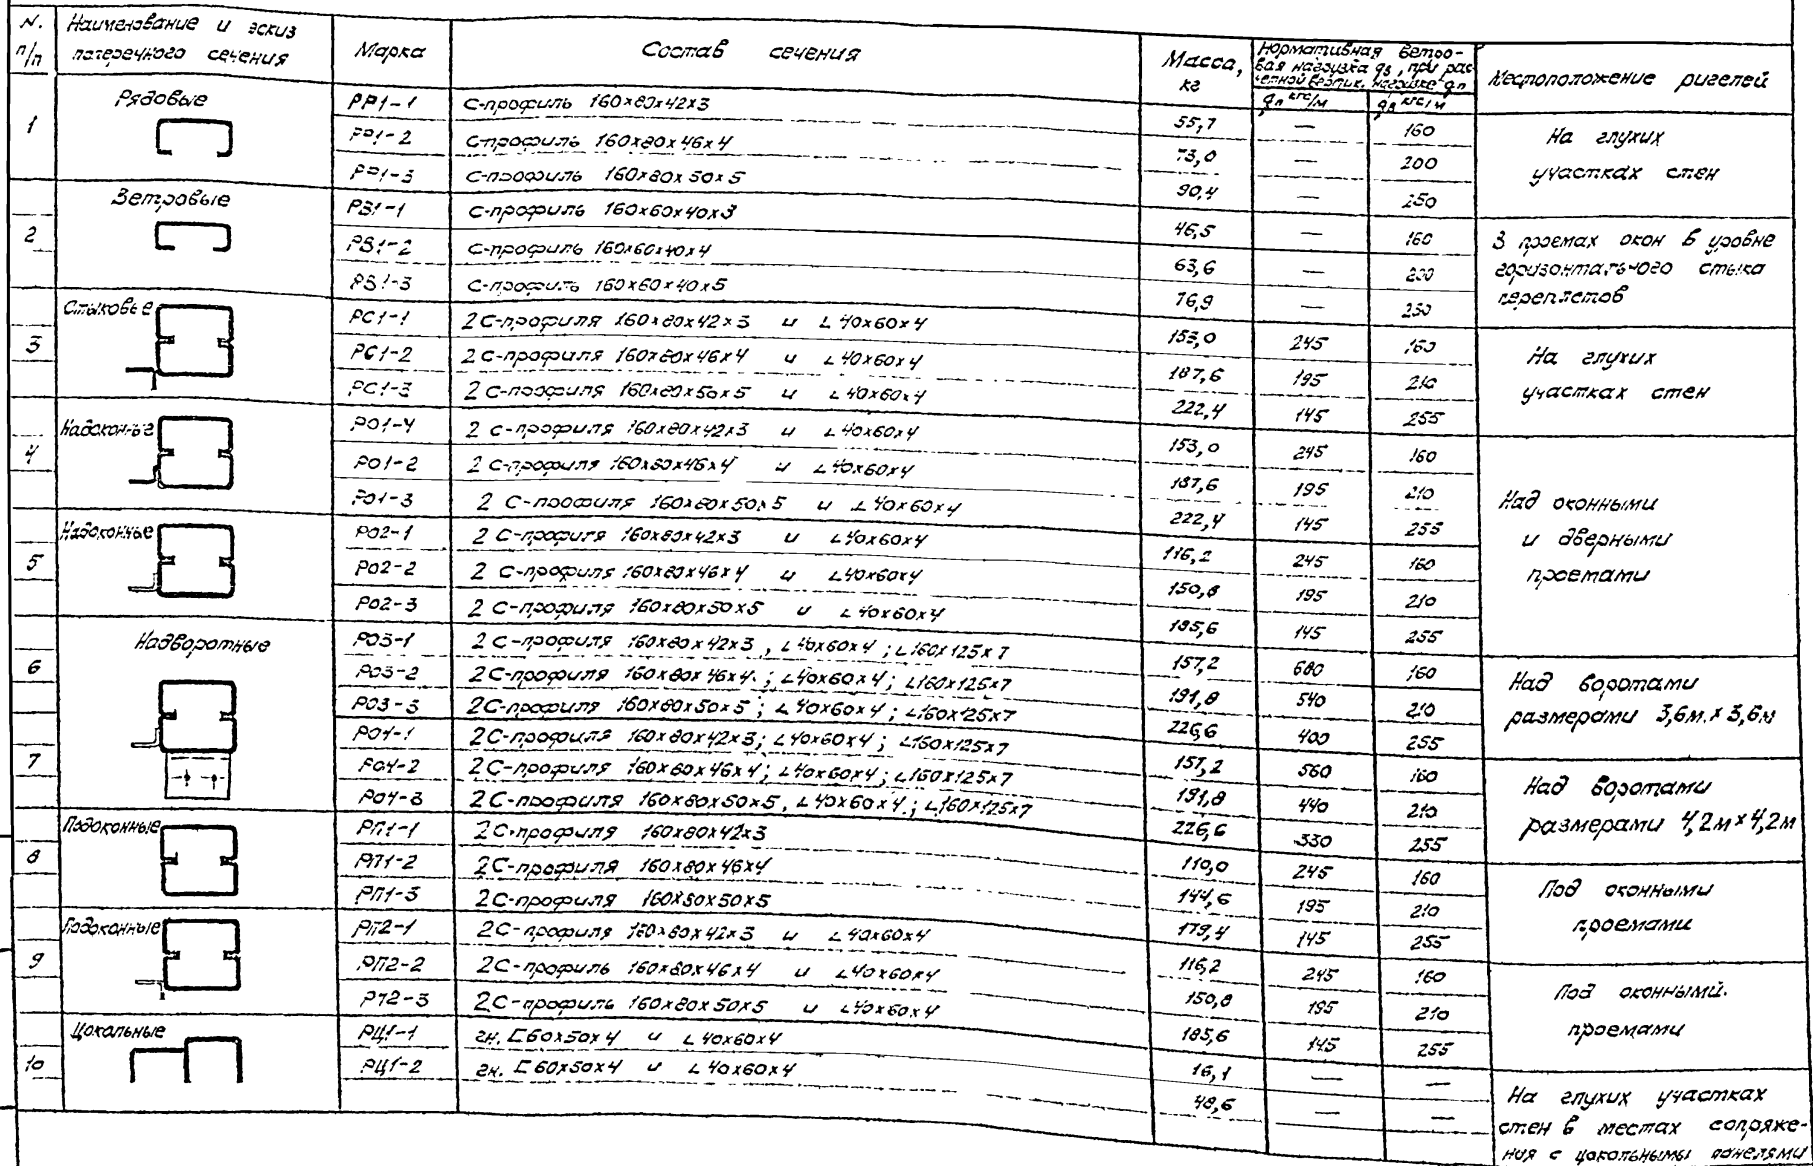 N. п/п Наименование и эскиз поперечного сечения Марка Состав сечения Масса, кг Нормативная ветровая нагрузка qв, при расчетной вертик. нагрузке qп Местоположение ригелей
qп кгс/м qв кгс/м
1 Рядовые РР1-1 С-профиль 160х80х42х3 55,7 — 160 На глухих участках стен
РР1-2 С-профиль 160х80х46х4 73,0 — 200
РР1-3 С-профиль 160х80х50х5 90,4 — 250
2 Ветровые РВ1-1 С-профиль 160х60х40х3 46,5 — 160 В проемах окон в уровне горизонтального стыка переплетов
РВ1-2 С-профиль 160х60х40х4 63,6 — 200
РВ1-3 С-профиль 160х60х40х5 76,9 — 250
3 Стыковые РС1-1 2С-профиля 160х80х42х3 и L40х60х4 153,0 245 160 На глухих участках стен
РС1-2 2С-профиля 160х80х46х4 и L40х60х4 187,6 195 210
РС1-3 2С-профиля 160х80х50х5 и L40х60х4 222,4 145 255
4 Надоконные РО1-4 2 С-профиля 160х80х42х3 и L40х60х4 153,0 245 160 Над оконными и дверными проемами
РО1-2 2 С-профиля 160х80х46х4 и L40х60х4 187,6 195 210
РО1-3 2 С-профиля 160х80х50х5 и L40х60х4 222,4 145 255
5 Надоконные РО2-1 2 С-профиля 160х80х42х3 и L40х60х4 116,2 245 160
РО2-2 2 С-профиля 160х80х46х4 и L40х60х4 150,8 195 210
РО2-3 2 С-профиля 160х80х50х5 и L40х60х4 185,6 145 255
6 Надворотные РО3-1 2С-профиля 160х80х42х3, L40х60х4; L160х125х7 157,2 680 160 Над воротами размерами 3,6м.х3,6м
РО3-2 2С-профиля 160х80х46х4.; L40х60х4; L160х125х7 191,8 540 210
РО3-3 2С-профиля 160х80х50х5; L40х60х4; L160х125х7 226,6 400 255
7 РО4-1 2С-профиля 160х80х42х3; L40х60х4; L160х125х7 157,2 560 160 Над воротами размерами 4,2м х 4,2м
РО4-2 2С-профиля 160х80х46х4; L40х60х4; L160х125х7 191,8 440 210
РО4-3 2С-профиля 160х80х50х5, L40х60х4.; L160х125х7 226,6 330 255
8 Подоконные РП1-1 2С-профиля 160х80х42х3 110,0 245 160 Под оконными проемами
РП1-2 2С-профиля 160х80х46х4 144,6 195 210
РП1-3 2С-профиля 160х80х50х5 179,4 145 255
9 Подоконные РП2-1 2С-профиля 160х80х42х3 и L40х60х4 116,2 245 160 Под оконными. проемами
РП2-2 2С-профиль 160х80х46х4 и L40х60х4 150,8 195 210
РП2-3 2С-профиль 160х80х50х5 и L40х60х4 185,6 145 255
10 Цокольные РЦ1-1 гн. [60х50х4 и L40х60х4 16,1 — — На глухих участках стен в местах сопряжения с цокольными панелями
РЦ1-2 гн. [60х50х4 и L40х60х4 48,6 — —